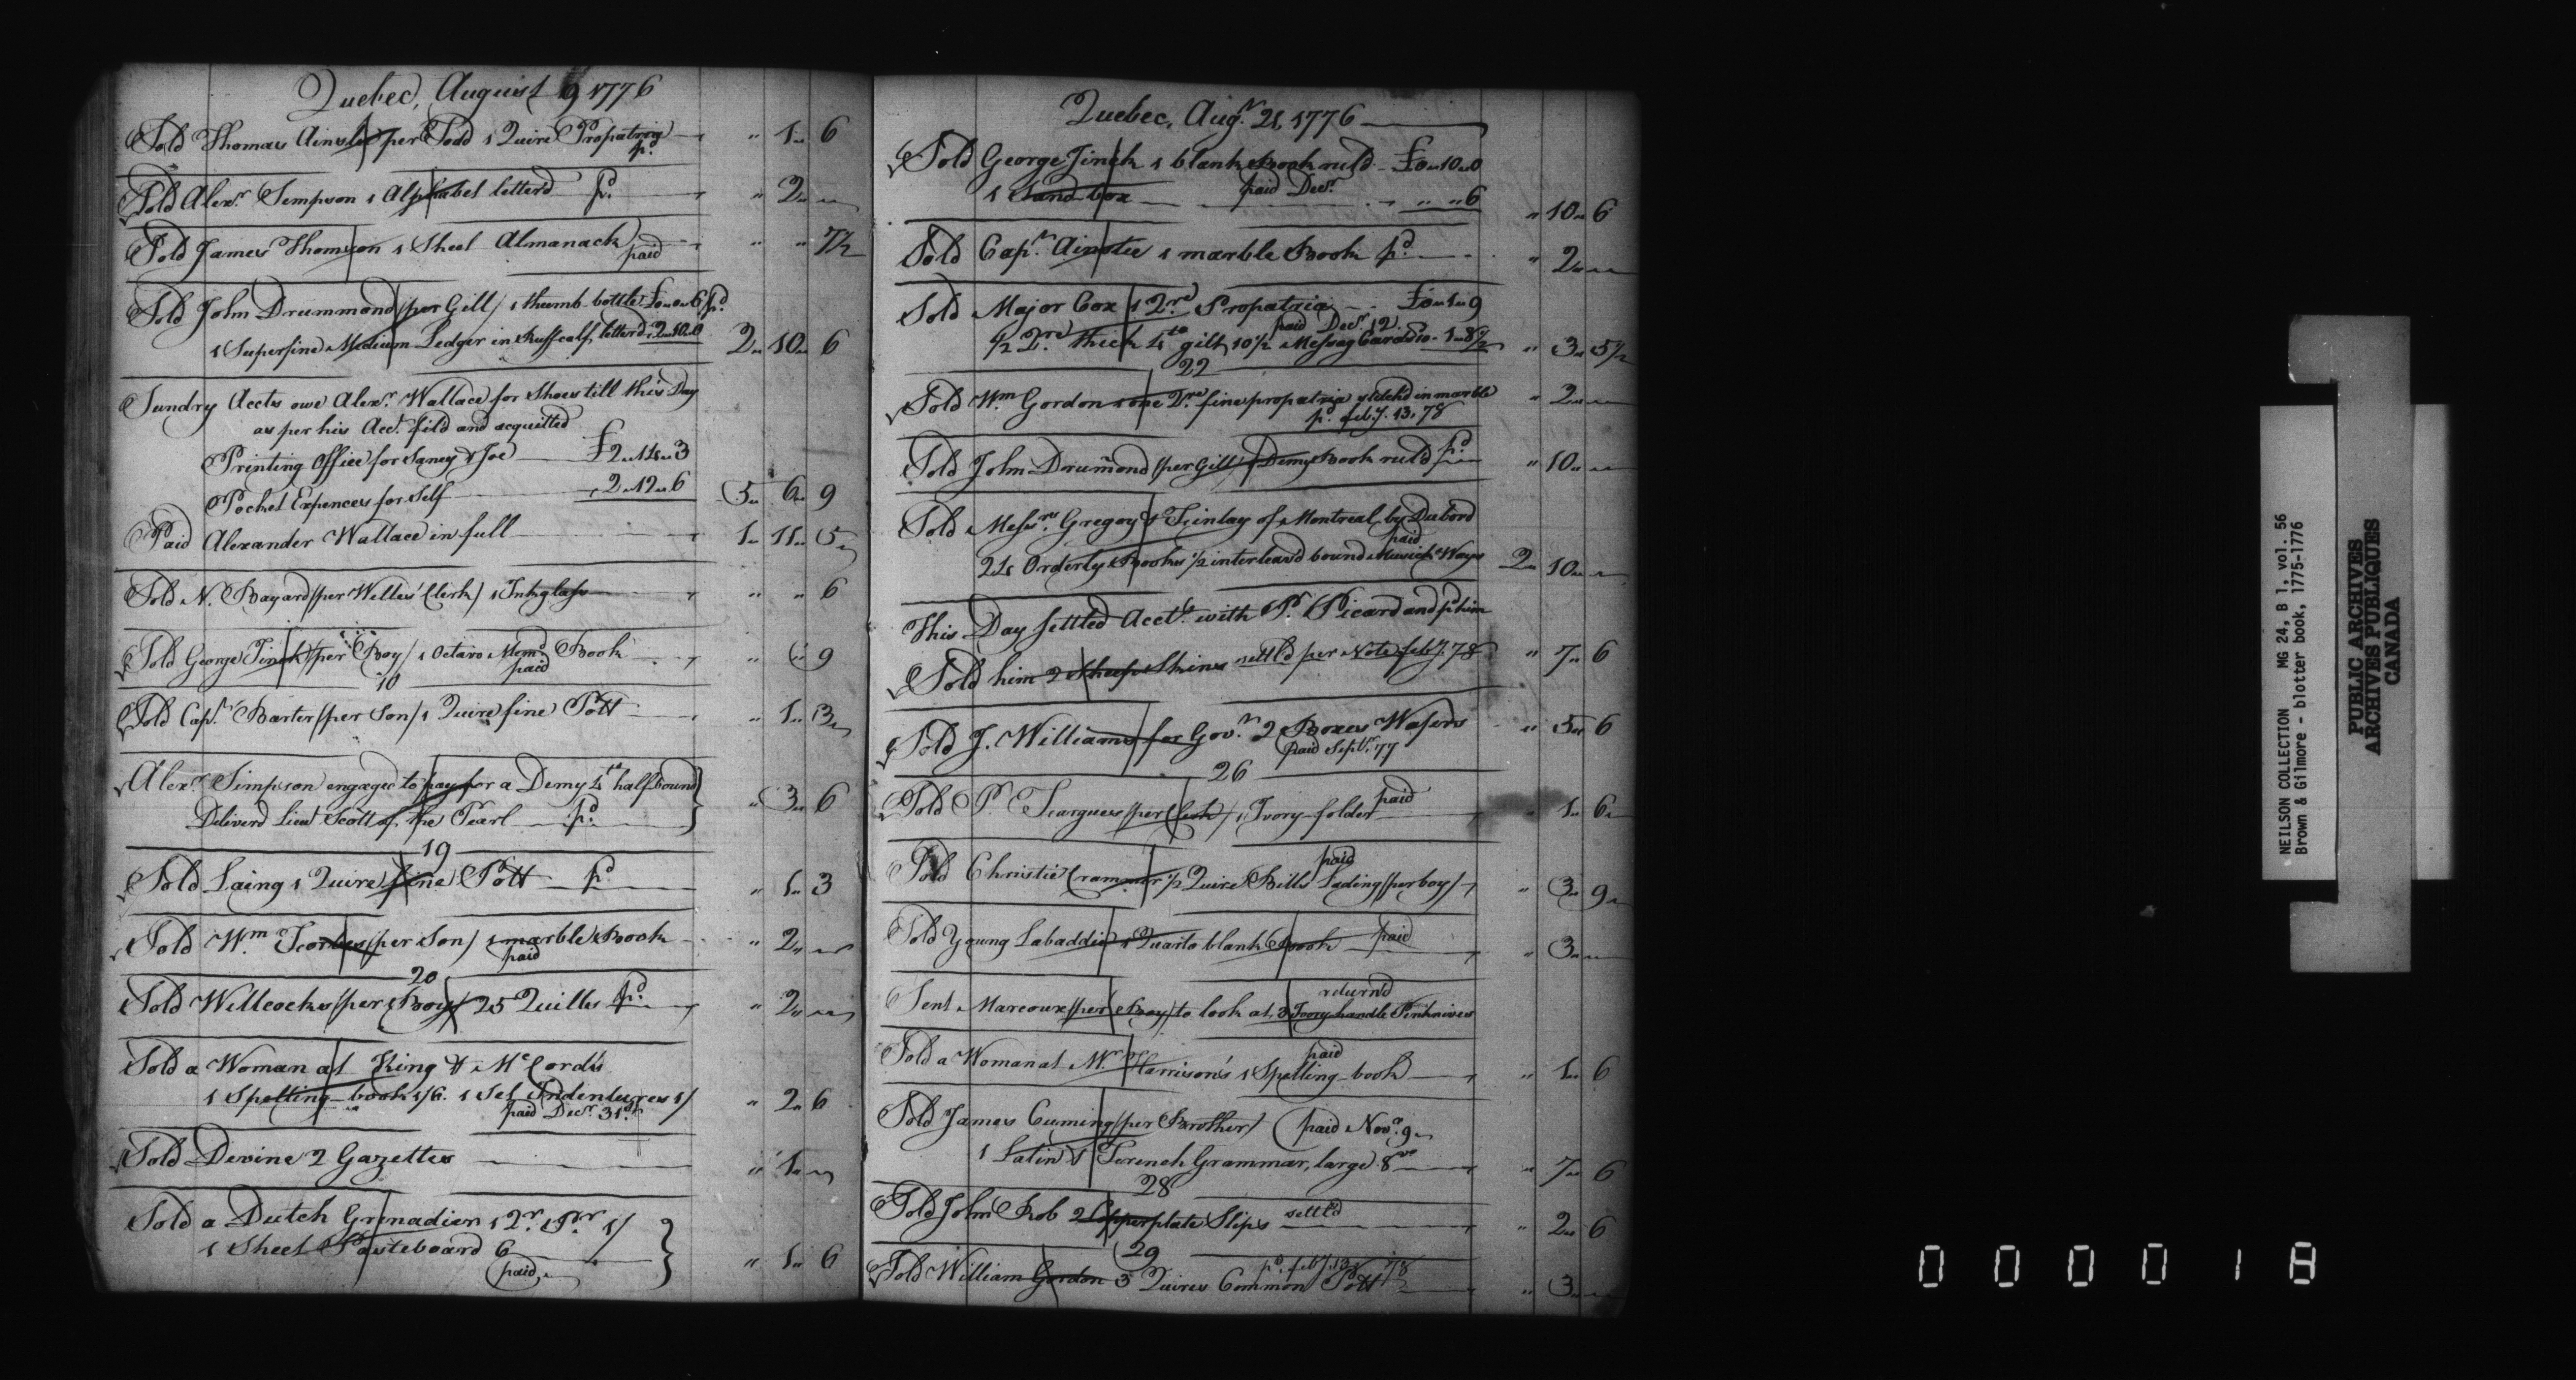 Quebec, August 9 1776
Sold Thomas Ainslie per Todd 1 Quire Propatria " 1 " 6
pd.
Sold Alexr. Simpson 1 Alphabet letterd pd. " 2 "
Sold James Thomson 1 Sheet Almanack " " 7½
paid
Sold John Drummond /per Gill/ 1 thumb bottle £0 " 0 " 6 pd.
1 Superfine Medium Ledger in Ruff calf, letterd 2 " 10 " 0 2 " 10 " 6
Sundry Accts owe Alexr. Wallace for Shoes till this Day
as per his Acct. fild and acquitted
Printing Office for Saney & Joe £2 " 14 " 3
Pocket Expences for Self 2 " 12 " 6 5 " 6 " 9
Paid Alexander Wallace in full 1 " 11 " 5
Sold N. Bayard /per Willes' Clerk/ 1 Inkglass " " 6
Sold George Finck /per Boy/ 1 Octavo Memd Book " " 9
paid
10
Sold Capn. Barter /per Son/ 1 Quire fine Pott " 1 " 3
Alexr. Simpson engaged to pay for a Demy 4to half bound
Deliverd Lieut Scott of the Pearl pd. " 3 " 6
19
Sold Laing 1 Quire fine Pott pd. " 1 " 3
Sold Wm. /per Son/ 1 marble Book " 2 "
paid
20
Sold Willcocks /per Boy/ 25 Quills pd. " 2 "
Sold a Woman at King & McCord's
1 Spelling-book 1/6. 1 Set Indentures 1/ " 2 " 6
paid Decr. 31st.
Sold Devine 2 Gazettes " 1 "
Sold a Dutch Grenadier 1 Qr. Pr. 1/
1 Sheet Pasteboard 6 " 1 " 6
paid
Quebec, Augt. 21, 1776
Sold George Finck 1 blank Book ruld £0 " 10 " 0
1 Sand box paid Decr. " " 6 " 10 " 6
Sold Capn. Ainslie 1 marble Book pd. " 2 "
Sold Major Cox 1 Qre. Propatria £0 " 1 " 9
paid Decr. 12.
½ Qre. thick 4to gilt, 10½ Messag Cards 10 - 1 " 8½ " 3 " 5½
22
Sold Wm Gordon one Qre. fine propatria stitchd in marble " 2 "
pd. feby. 13, 78
Sold John Drumond /per Gill/ 1 Demy Book ruld pd. " 10 "
Sold Messrs. Gregory & Finlay of Montreal, by Dubord
paid
24 Orderly Books ½ interleav'd bound Musick Ways 2 " 10 "
This Day settled Acct. with Pr. Picard and pd him
Sold him 2 Sheep Skins settld per Note feby. 78 " 7 " 6
Sold J. Williams for Govr. 2 Boxes Wafers " 5 " 6
paid Septr. 77
26
Sold P. Fargues /per Clerk/ 1 Ivory folder paid " 1 " 6
paid
Sold Christie Crammer ½ Quire Bills Lading /per boy/ " 3 " 9
Sold Young Labaddie 1 Quarto blank Book paid " 3 "
returnd
Sent Marcoux /per Boy/ to look at, 3 Ivory handle Penknives
paid
Sold a Woman at Mr. Harrison's 1 Spelling-book " 1 " 6
Sold James Cuming /per Brother/ paid Novr. 9
1 Latin & French Grammar, large 8vo " 7 " 6
28
Sold John Rob 2 Copperplate Slips settld " 2 " 6
29
pd. feby. 13, 78
Sold William Gordon 3 Quires Common Pott " 3 "
NEILSON COLLECTION MG 24, B 1, vol. 56
Brown & Gilmore - blotter book, 1775-1776
PUBLIC ARCHIVES
ARCHIVES PUBLIQUES
CANADA
000018